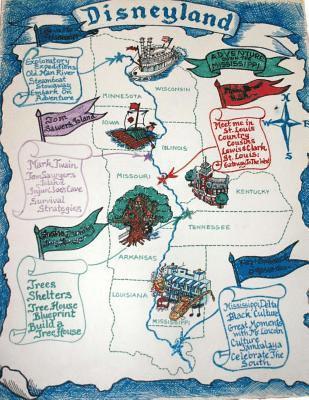 Disneyland
ADVENTURE
DOWN THE
MISSISSIPPI
Exploratory
Expeditions
Old Man River
Steamboat
Stowaway
Embark On
Adventure
WISCONSIN
MINNESOTA
IOWA
ILLINOIS
Meet me in
St. Louis
Country
Cousins
Lewis & Clark
St. Louis:
Gateway To The West
Tom
Sawyers Island
Mark Twain
Tom Sawyers
Island
Injun Joes Cave
Survival
Strategies
MISSOURI
KENTUCKY
TENNESSEE
ARKANSAS
LOUISIANA
MISSISSIPPI
Trees
Shelters
Tree House
Blueprint
Build a
Tree House
Mississippi Delta
Black Culture
Great Moments
with Mr. Lincoln
Culture
Jambalaya
Celebrate The
South